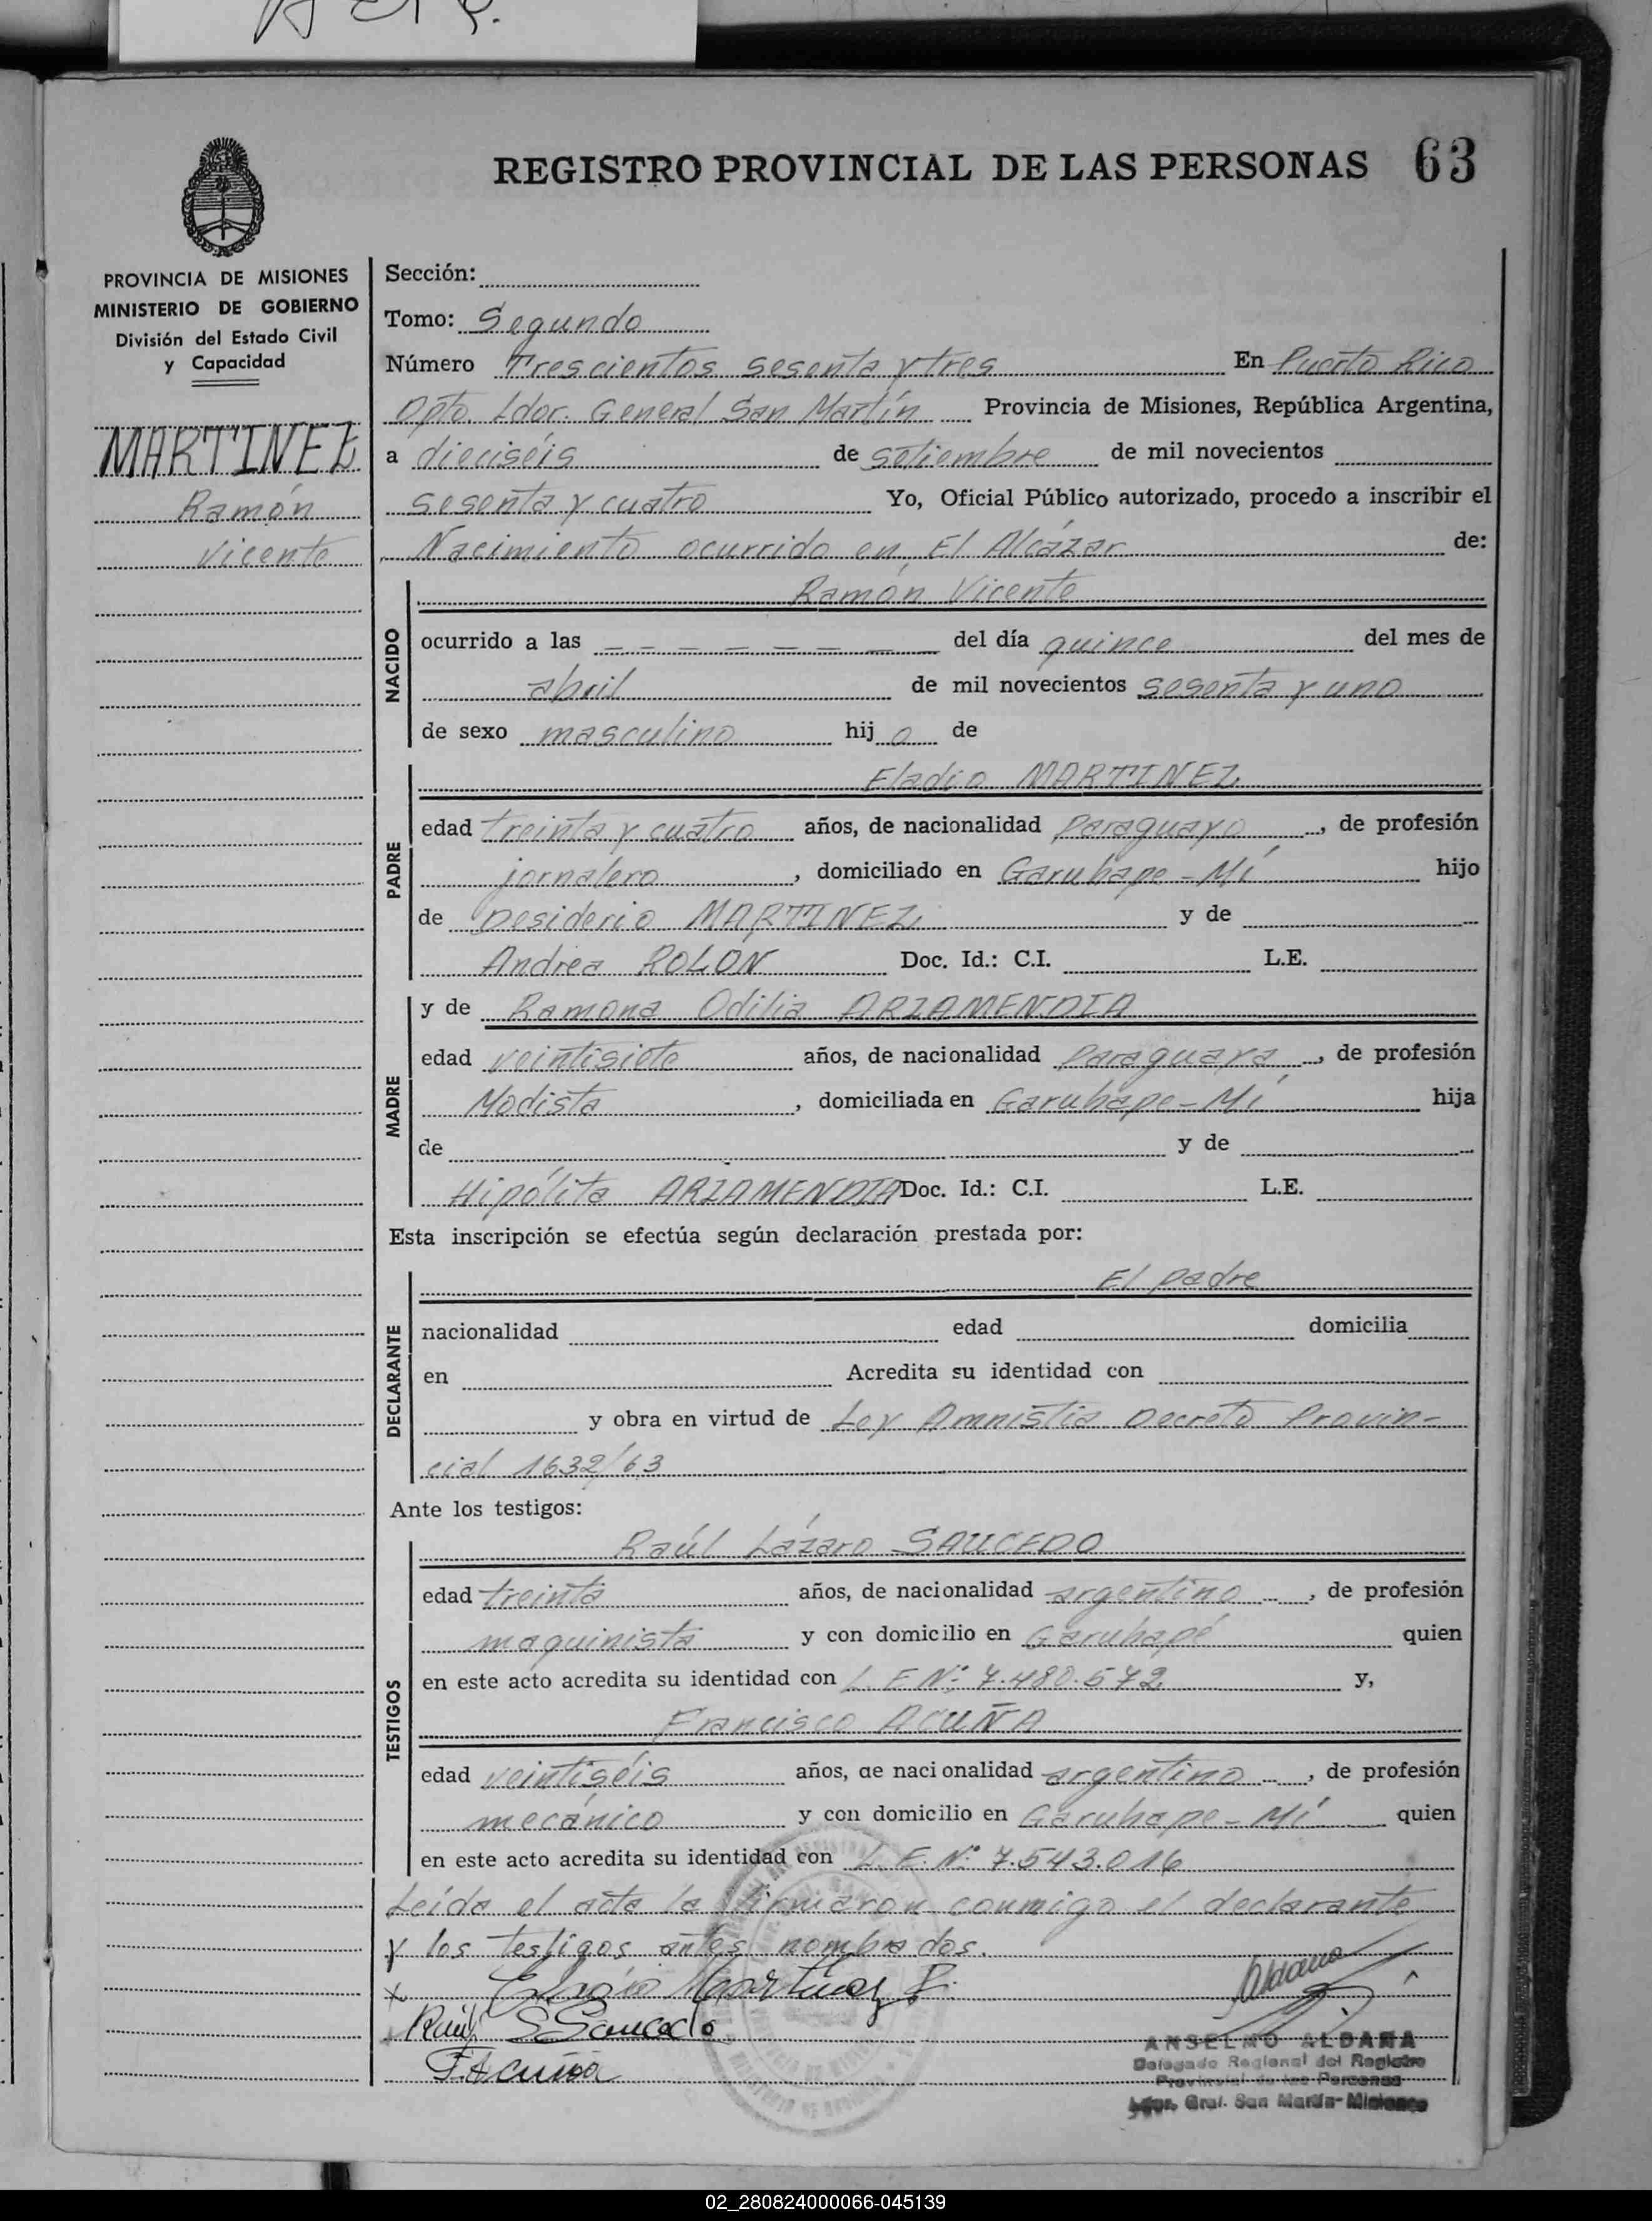 REGISTRO PROVINCIAL DE LAS PERSONAS 63
PROVINCIA DE MISIONES
MINISTERIO DE GOBIERNO
División del Estado Civil
y Capacidad
MARTINEZ
Ramón
Vicente
Sección:
Tomo: Segundo
Número Trescientos sesenta y tres En Puerto Rico
Dpto. Ldor. General San Martín Provincia de Misiones, República Argentina,
a dieciséis de setiembre de mil novecientos
sesenta y cuatro Yo, Oficial Público autorizado, procedo a inscribir el
Nacimiento ocurrido en El Alcázar de:
NACIDO
Ramón Vicente
ocurrido a las — — — — — — — del día quince del mes de
abril de mil novecientos sesenta y uno
de sexo masculino hijo de
PADRE
Eladio MARTINEZ
edad treinta y cuatro años, de nacionalidad Paraguayo, de profesión
jornalero, domiciliado en Garuhape-Mí hijo
de Desiderio MARTINEZ y de
Andrea ROLÓN Doc. Id.: C.I. L.E.
MADRE
y de Ramona Odilia ARZAMENDIA
edad veintisiete años, de nacionalidad Paraguaya, de profesión
Modista, domiciliada en Garuhape-Mí hija
de y de
Hipólita ARZAMENDIA Doc. Id.: C.I. L.E.
Esta inscripción se efectúa según declaración prestada por:
DECLARANTE
El padre
nacionalidad edad domicilia
en Acredita su identidad con
y obra en virtud de Ley Amnistia Decreto Provin-
cial 1632/63
Ante los testigos:
TESTIGOS
Raúl Lázaro SAUCEDO
edad treinta años, de nacionalidad argentino, de profesión
maquinista y con domicilio en Garuhapé quien
en este acto acredita su identidad con L. E Nº: 7.480.572 y,
Francisco ACUÑA
edad veintiséis años, de nacionalidad argentino, de profesión
mecánico y con domicilio en Garuhape-Mí quien
en este acto acredita su identidad con L. E. Nº: 7.543.016
Leída el acta la firmaron conmigo el declarante
y los testigos antes nombrados.
x Eladio Martinez R.
Raúl S Saucedo
F. Acuña
Aldana
ANSELMO ALDANA
Delegado Regional del Registro
Provincial de las Personas
Ldor. Gral. San Martín-Misiones
02_280824000066-045139